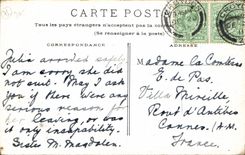 CARTE POSTALE
Tous les pays étrangers n'acceptent pas la
(Se renseigner à la poste)
CORRESPONDANCE
ADRESSE
Julia arrived safely
I am sorry she did
not suit. May I ask
you if there were any
serious reason for
her leaving, or was
it only incapability.
Sister M. Magdalen
Madame La Comtesse
E. de Pas.
Villa Mireille
Rout d'Antibes
Cannes. (A.M.
France.